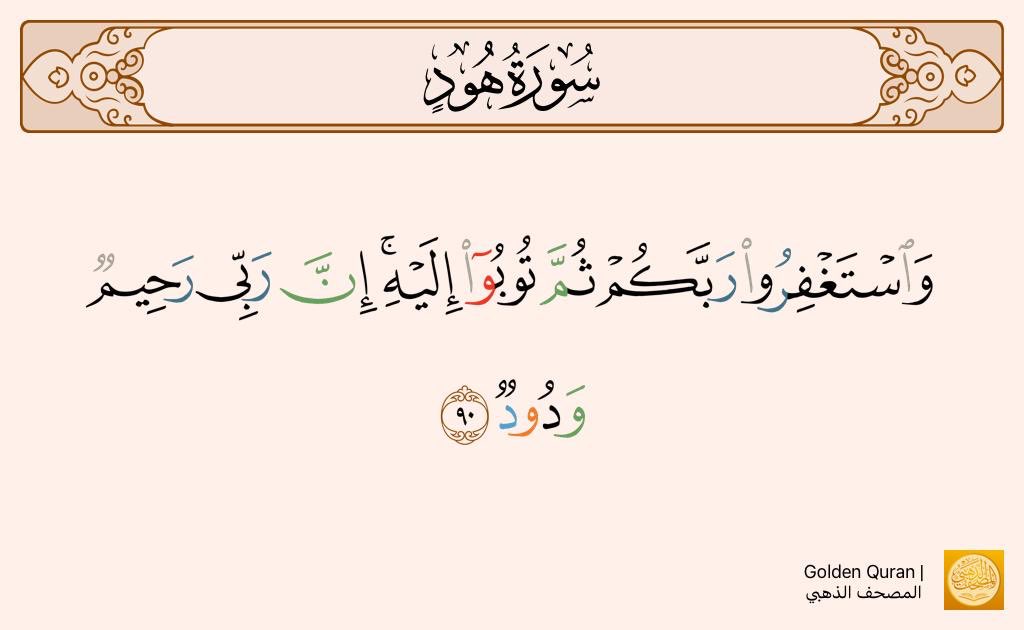 سُورَةُ هُودٍ
وَٱسْتَغْفِرُوا۟ رَبَّكُمْ ثُمَّ تُوبُوٓا۟ إِلَيْهِ ۚ إِنَّ رَبِّى رَحِيمٌ
وَدُودٌ ٩٠
Golden Quran |
المصحف الذهبي
المصحف الذهبي